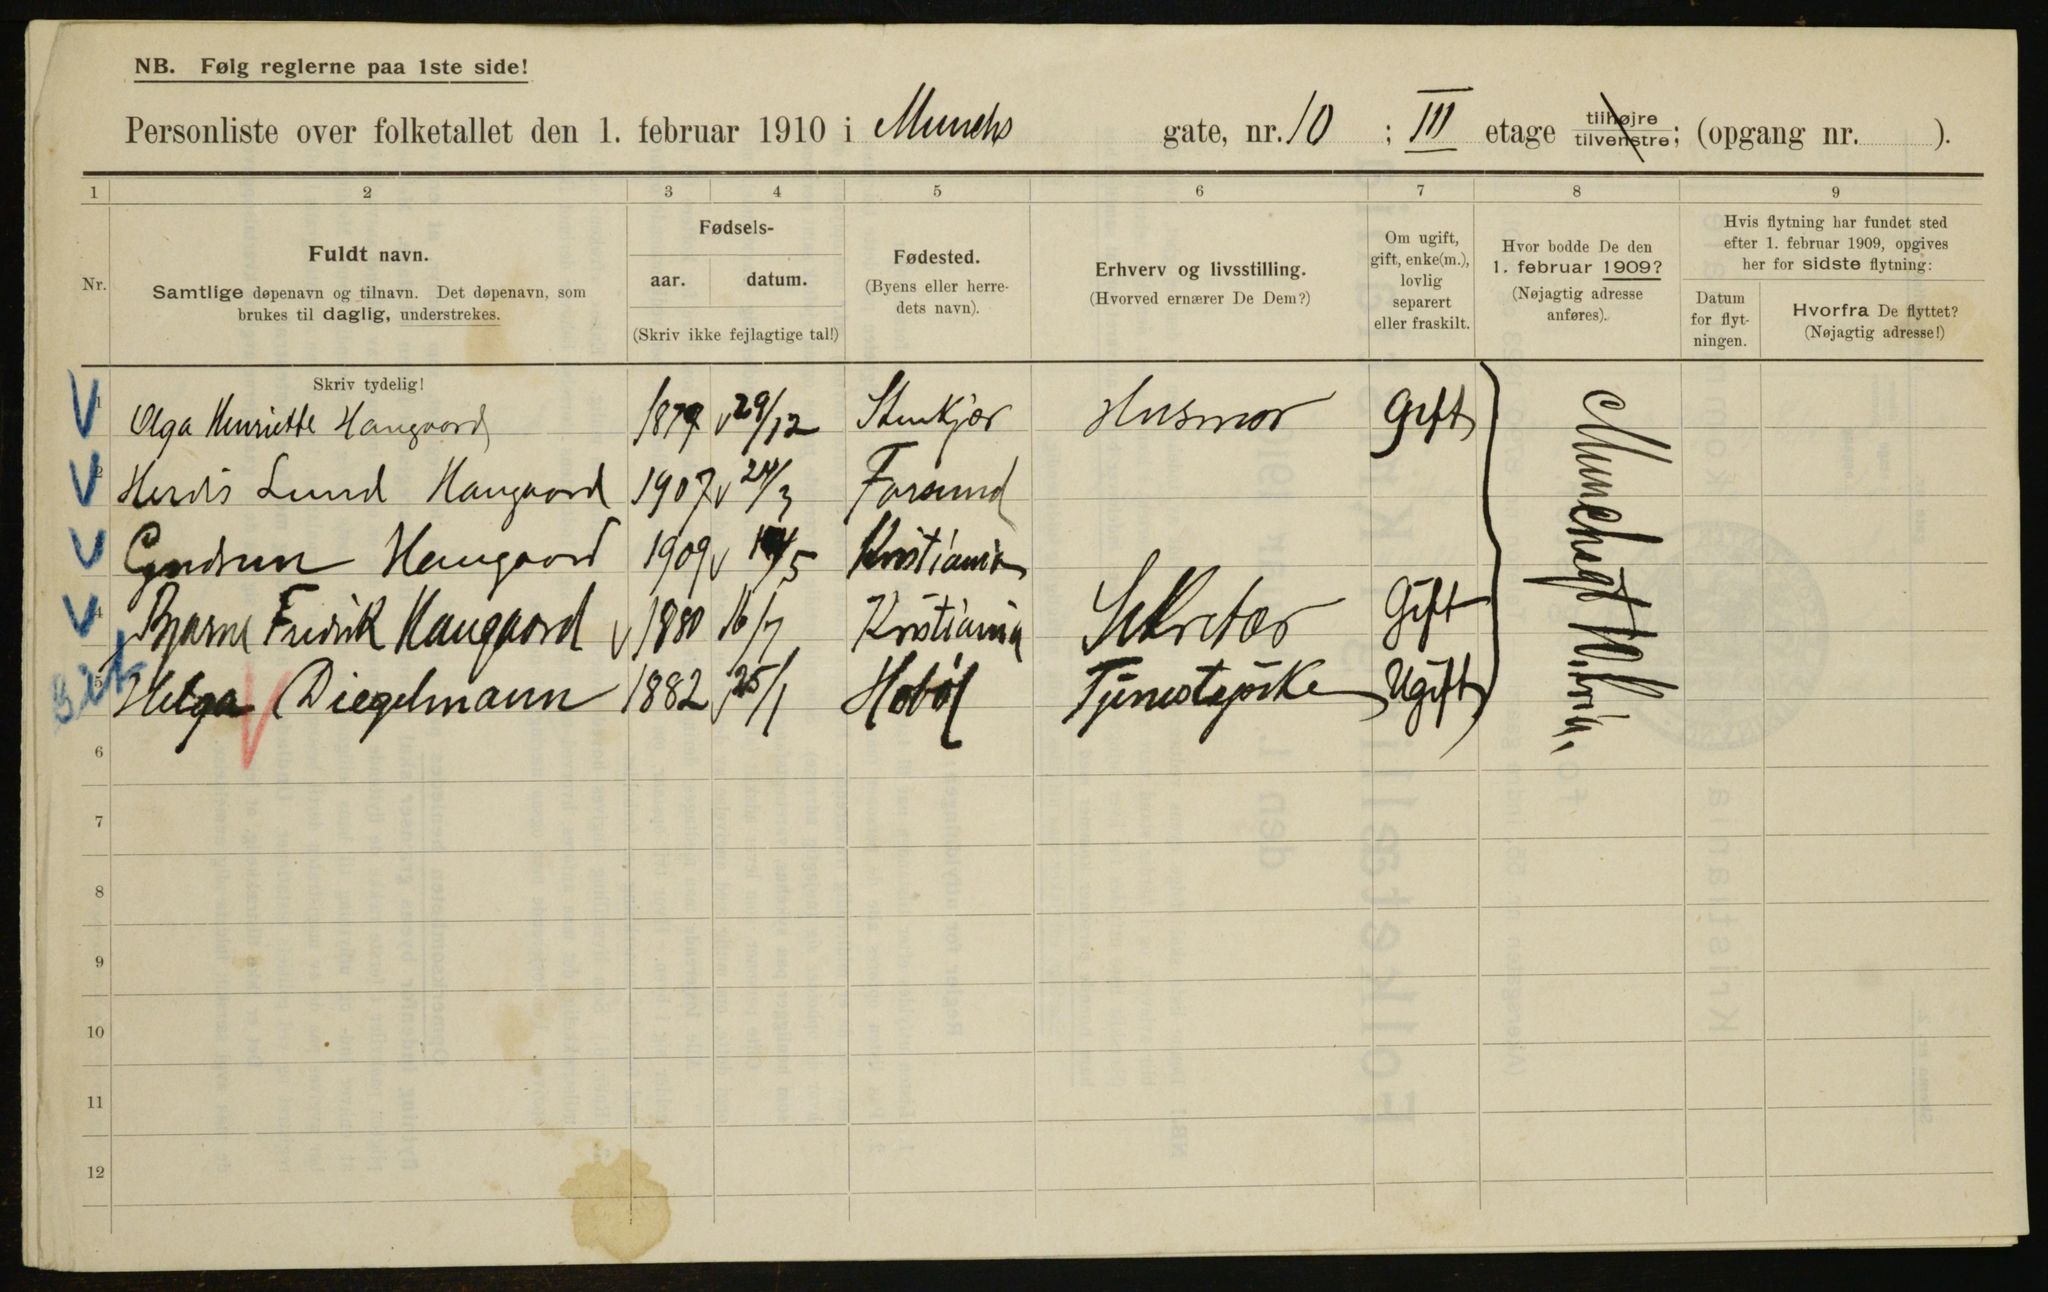 NB. Følg reglerne paa 1ste side!
Personliste over folketallet den 1. februar 1910 i Munchs gate, nr. 10 ; III etage tilhøjre tilvenstre; (opgang nr. ).
1 2 3 4 5 6 7 8 9
Nr.
Fuldt navn.
Samtlige døpenavn og tilnavn. Det døpenavn, som
brukes til daglig, understrekes.
Fødsels-
aar. datum.
(Skriv ikke fejlagtige tal!)
Fødested.
(Byens eller herre-
dets navn).
Erhverv og livsstilling.
(Hvorved ernærer De Dem?)
Om ugift,
gift, enke(m.),
lovlig
separert
eller fraskilt.
Hvor bodde De den
1. februar 1909?
(Nøjagtig adresse
anføres).
Hvis flytning har fundet sted
efter 1. februar 1909, opgives
her for sidste flytning:
Datum
for flyt-
ningen.
Hvorfra De flyttet?
(Nøjagtig adresse!)
Skriv tydelig!
1 Olga Henriette Haugaard 1879 29/12 Stenkjær Husmor Gift
2 Herdis Lund Haugaard 1907 24/3 Farsund
Gudrun Haugaard 1909 14/5 Kristiania
4 Bjarne Fredrik Haugaard 1880 16/7 Kristiania Sekretær Gift
5 Helga Diegelmann 1882 25/1 Hobøl Tjenestepike Ugift
Munchsgt 10
6
7
8
9
10
11
12